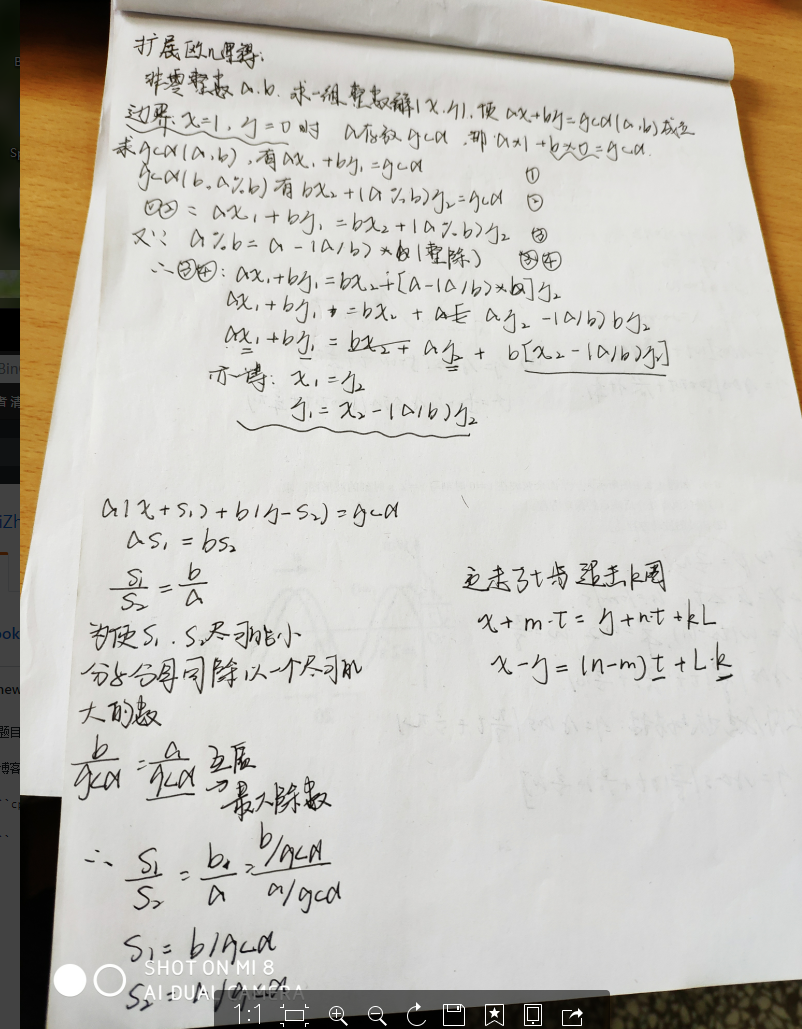 扩展欧几里得:
非零整数 a.b. 求一组整数解(x.y), 使 ax+by=gcd(a,b)成立
边界: x=1, y=0时 a存放gcd, 即 a×1+b×0=gcd.
求gcd(a,b), 有ax₁+by₁=gcd ①
gcd(b,a%b) 有 bx₂+(a%b)y₂=gcd ②
①② = ax₁+by₁=bx₂+(a%b)y₂ ③
又∵ a%b=a-(a/b)*b(整除) ④
∴③④: ax₁+by₁=bx₂+[a-(a/b)*b]y₂
ax₁+by₁=bx₂+ay₂-(a/b)by₂
ax₁+by₁=ay₂+b[x₂-(a/b)y₂]
亦得: x₁=y₂
y₁=x₂-(a/b)y₂
a(x+s₁)+b(y-s₂)=gcd
as₁=bs₂
s₁/s₂=b/a
为使s₁.s₂尽可能小
分子分母同除以一个尽可能
大的数
b/gcd=a/gcd 互质
→最大除数
∴ s₁/s₂=b/a=(b/gcd)/(a/gcd)
s₁=b/gcd
s₂=a/gcd
走了t步 追击k周
x+m·t=y+n·t+kL
x-y=(n-m)t+L·k
SHOT ON MI 8
AI DUAL CAMERA
1:1